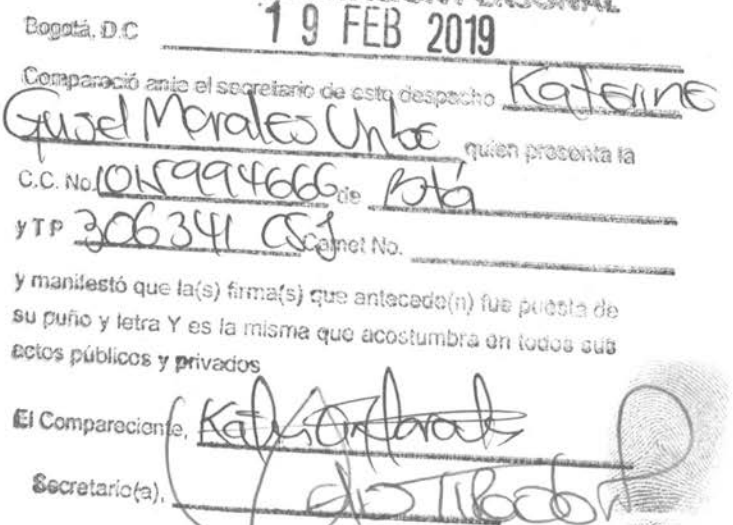 PERSONAL
Bogotá, D.C 19 FEB 2019
Compareció ante el secretario de esto despacho Katerine
Gisel Morales Uribe quien presenta la
C.C. No. de Btá
y T P 306341 CSJ Carnet No.
y manifestó que la(s) firma(s) que antecede(n) fue puesta de
su puño y letra Y es la misma que acostumbra en todos sus
actos públicos y privados
El Compareciente,
Secretario(a),